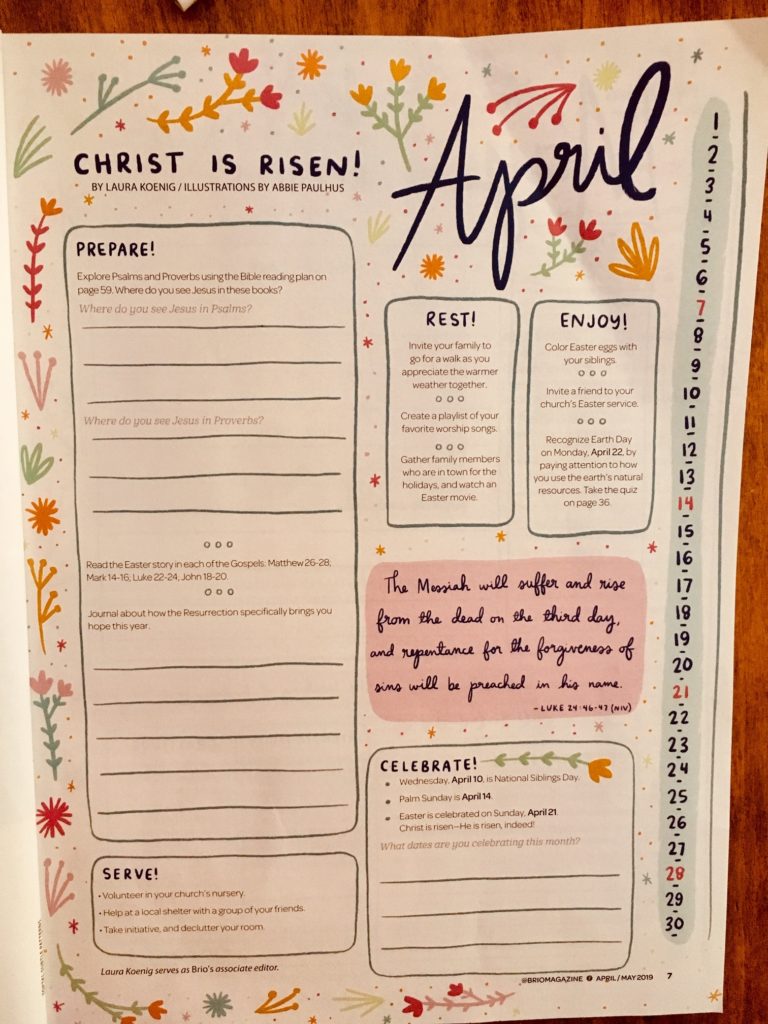 CHRIST IS RISEN!
BY LAURA KOENIG / ILLUSTRATIONS BY ABBIE PAULHUS
April
PREPARE!
Explore Psalms and Proverbs using the Bible reading plan on
page 59. Where do you see Jesus in these books?
Where do you see Jesus in Psalms?
Where do you see Jesus in Proverbs?
Read the Easter story in each of the Gospels: Matthew 26-28,
Mark 14-16, Luke 22-24, John 18-20.
Journal about how the Resurrection specifically brings you
hope this year.
SERVE!
• Volunteer in your church's nursery.
• Help at a local shelter with a group of your friends.
• Take initiative, and declutter your room.
Laura Koenig serves as Brio's associate editor.
REST!
Invite your family to
go for a walk as you
appreciate the warmer
weather together.
Create a playlist of your
favorite worship songs.
Gather family members
who are in town for the
holidays, and watch an
Easter movie.
ENJOY!
Color Easter eggs with
your siblings.
Invite a friend to your
church's Easter service.
Recognize Earth Day
on Monday, April 22, by
paying attention to how
you use the earth's natural
resources. Take the quiz
on page 36.
The Messiah will suffer and rise
from the dead on the third day,
and repentance for the forgiveness of
sins will be preached in his name.
- LUKE 24:46-47 (NIV)
CELEBRATE!
• Wednesday, April 10, is National Siblings Day.
• Palm Sunday is April 14.
• Easter is celebrated on Sunday, April 21.
Christ is risen—He is risen, indeed!
What dates are you celebrating this month?
1
2
3
4
5
6
7
8
9
10
11
12
13
14
15
16
17
18
19
20
21
22
23
24
25
26
27
28
29
30
@BRIOMAGAZINE APRIL / MAY 2019 7